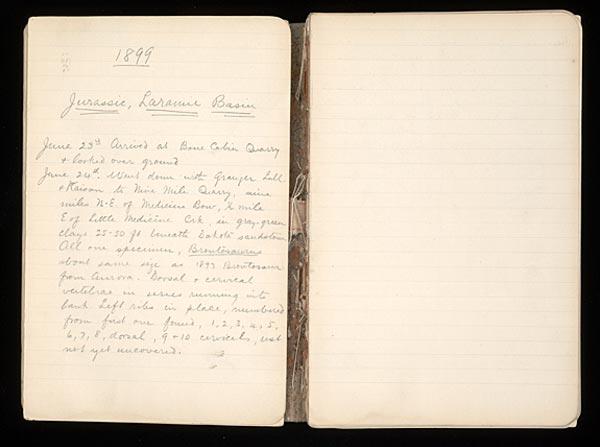 1899
Jurassic, Laramie Basin
June 23d Arrived at Bone Cabin Quarry
+ looked over ground
June 24th. Went down with Granger Lull
+ Kaison to Nine Mile Quarry, nine
miles N-E. of Medicine Bow, ½ mile
E of Little Medicine Crk. in gray-green
clays 25-50 ft beneath Dakota sandstone
All one specimen, Brontosaurus
about same size as 1897 Brontosaur
from Aurora. Dorsal + cervical
vertebrae in series running into
bank Left ribs in place, numbered
from first one found, 1, 2, 3, 4, 5,
6, 7, 8, dorsal, 9 + 10 cervicals, rest
not yet uncovered.